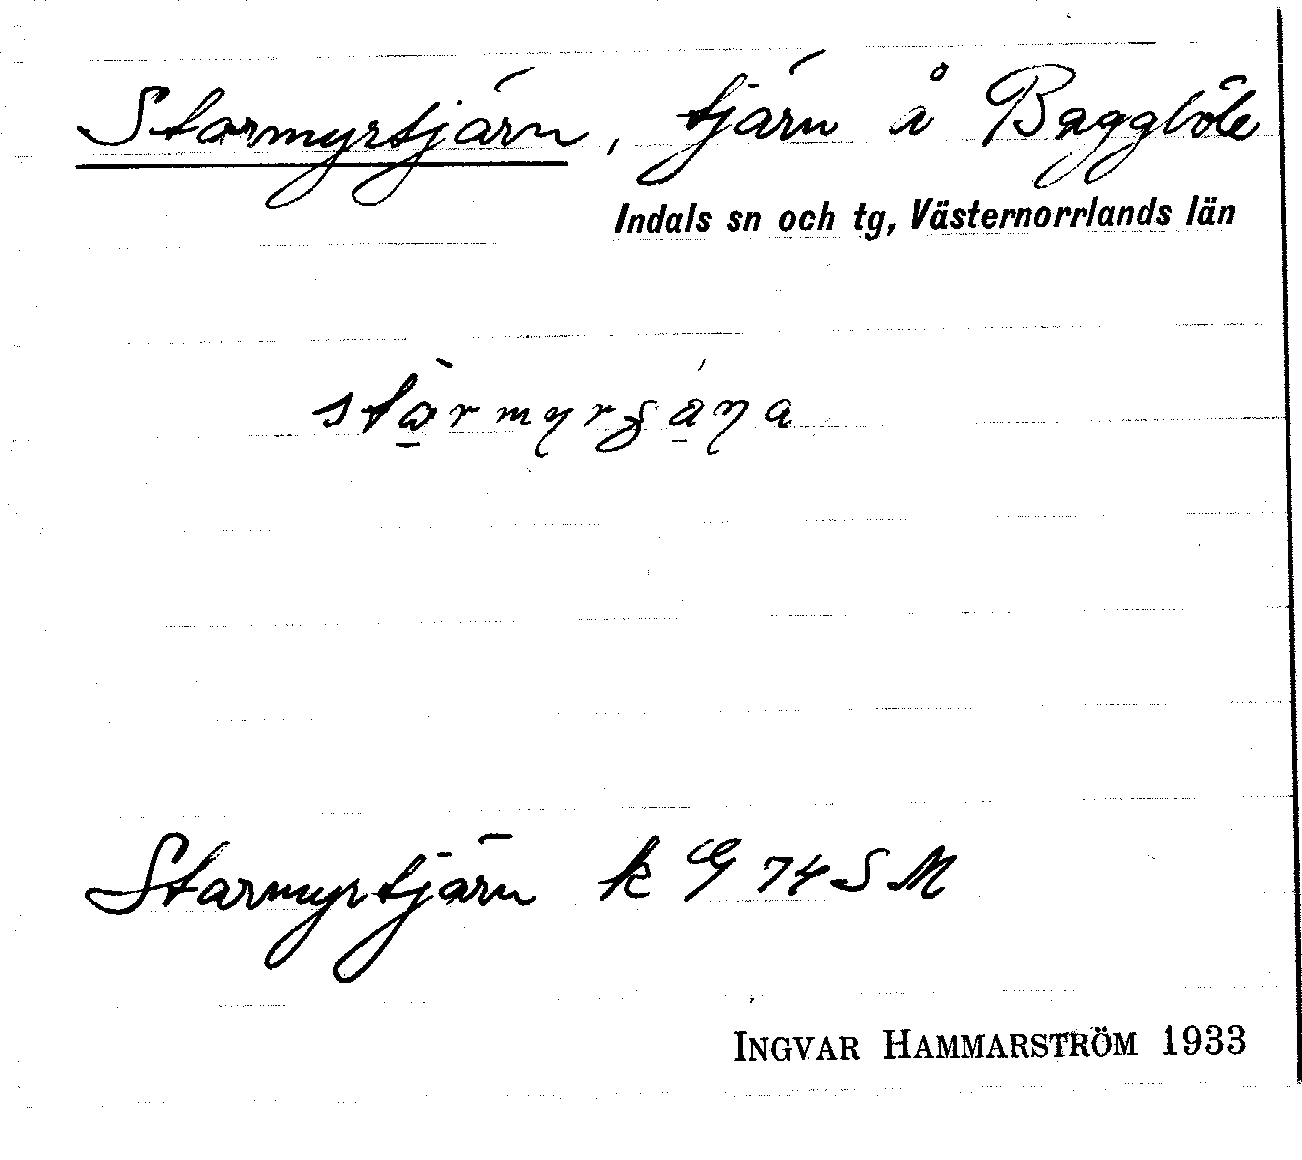 Starmyrtjärn, tjärn å Baggböle
Indals sn och tg, Västernorrlands län
Starmyrtjärn k G 74 S M
INGVAR HAMMARSTRÖM 1933